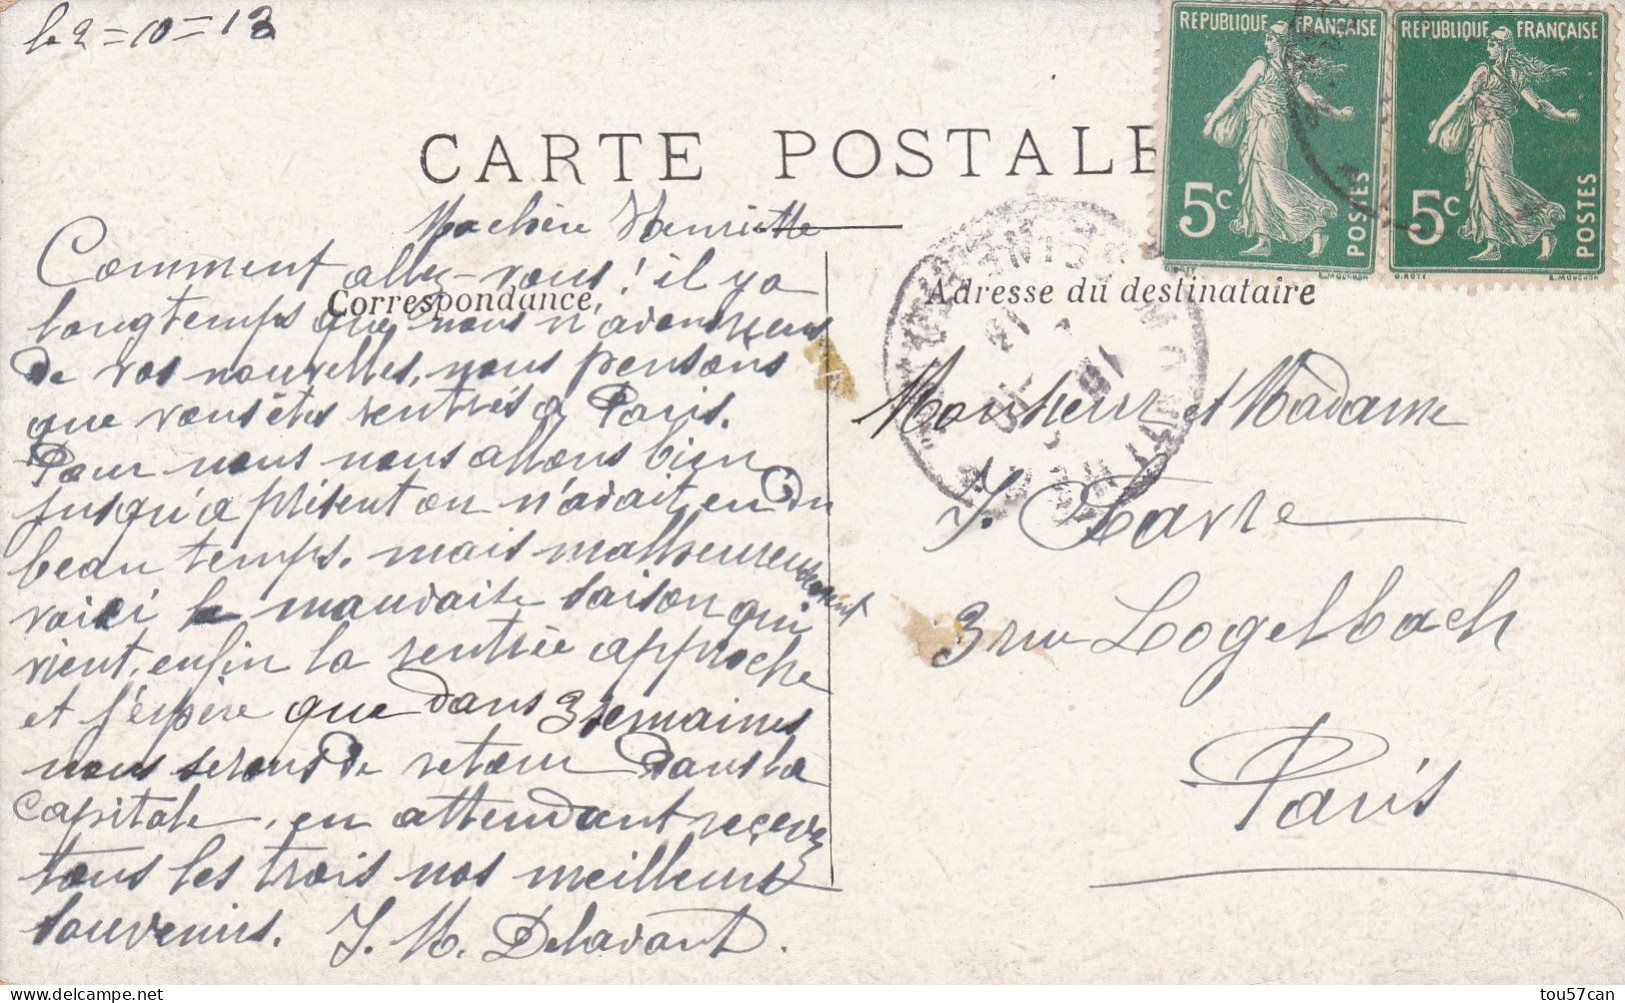 le 2=10=13
RÉPUBLIQUE FRANÇAISE
5c POSTES
RÉPUBLIQUE FRANÇAISE
5c POSTES
CARTE POSTALE
Ma chère Henriette
Correspondance
Adresse du destinataire
Comment allez-vous! il y a
longtemps que nous n'avons reçus
de vos nouvelles, nous pensons
que vous êtes rentrés à Paris.
Pour nous nous allons bien
jusqu'a présent on n'avait eu du
beau temps. mais malheureusement
voici la mauvaise saison qui
vient, enfin la rentrée approche
et j'espère que dans 3 semaines
nous serons de retour dans la
capitale, en attendant recevez
tous les trois nos meilleurs
souvenirs. J. M. Delavant.
Monsieur et Madame
J. Favre
3 rue Logelbach
Paris
tou57can